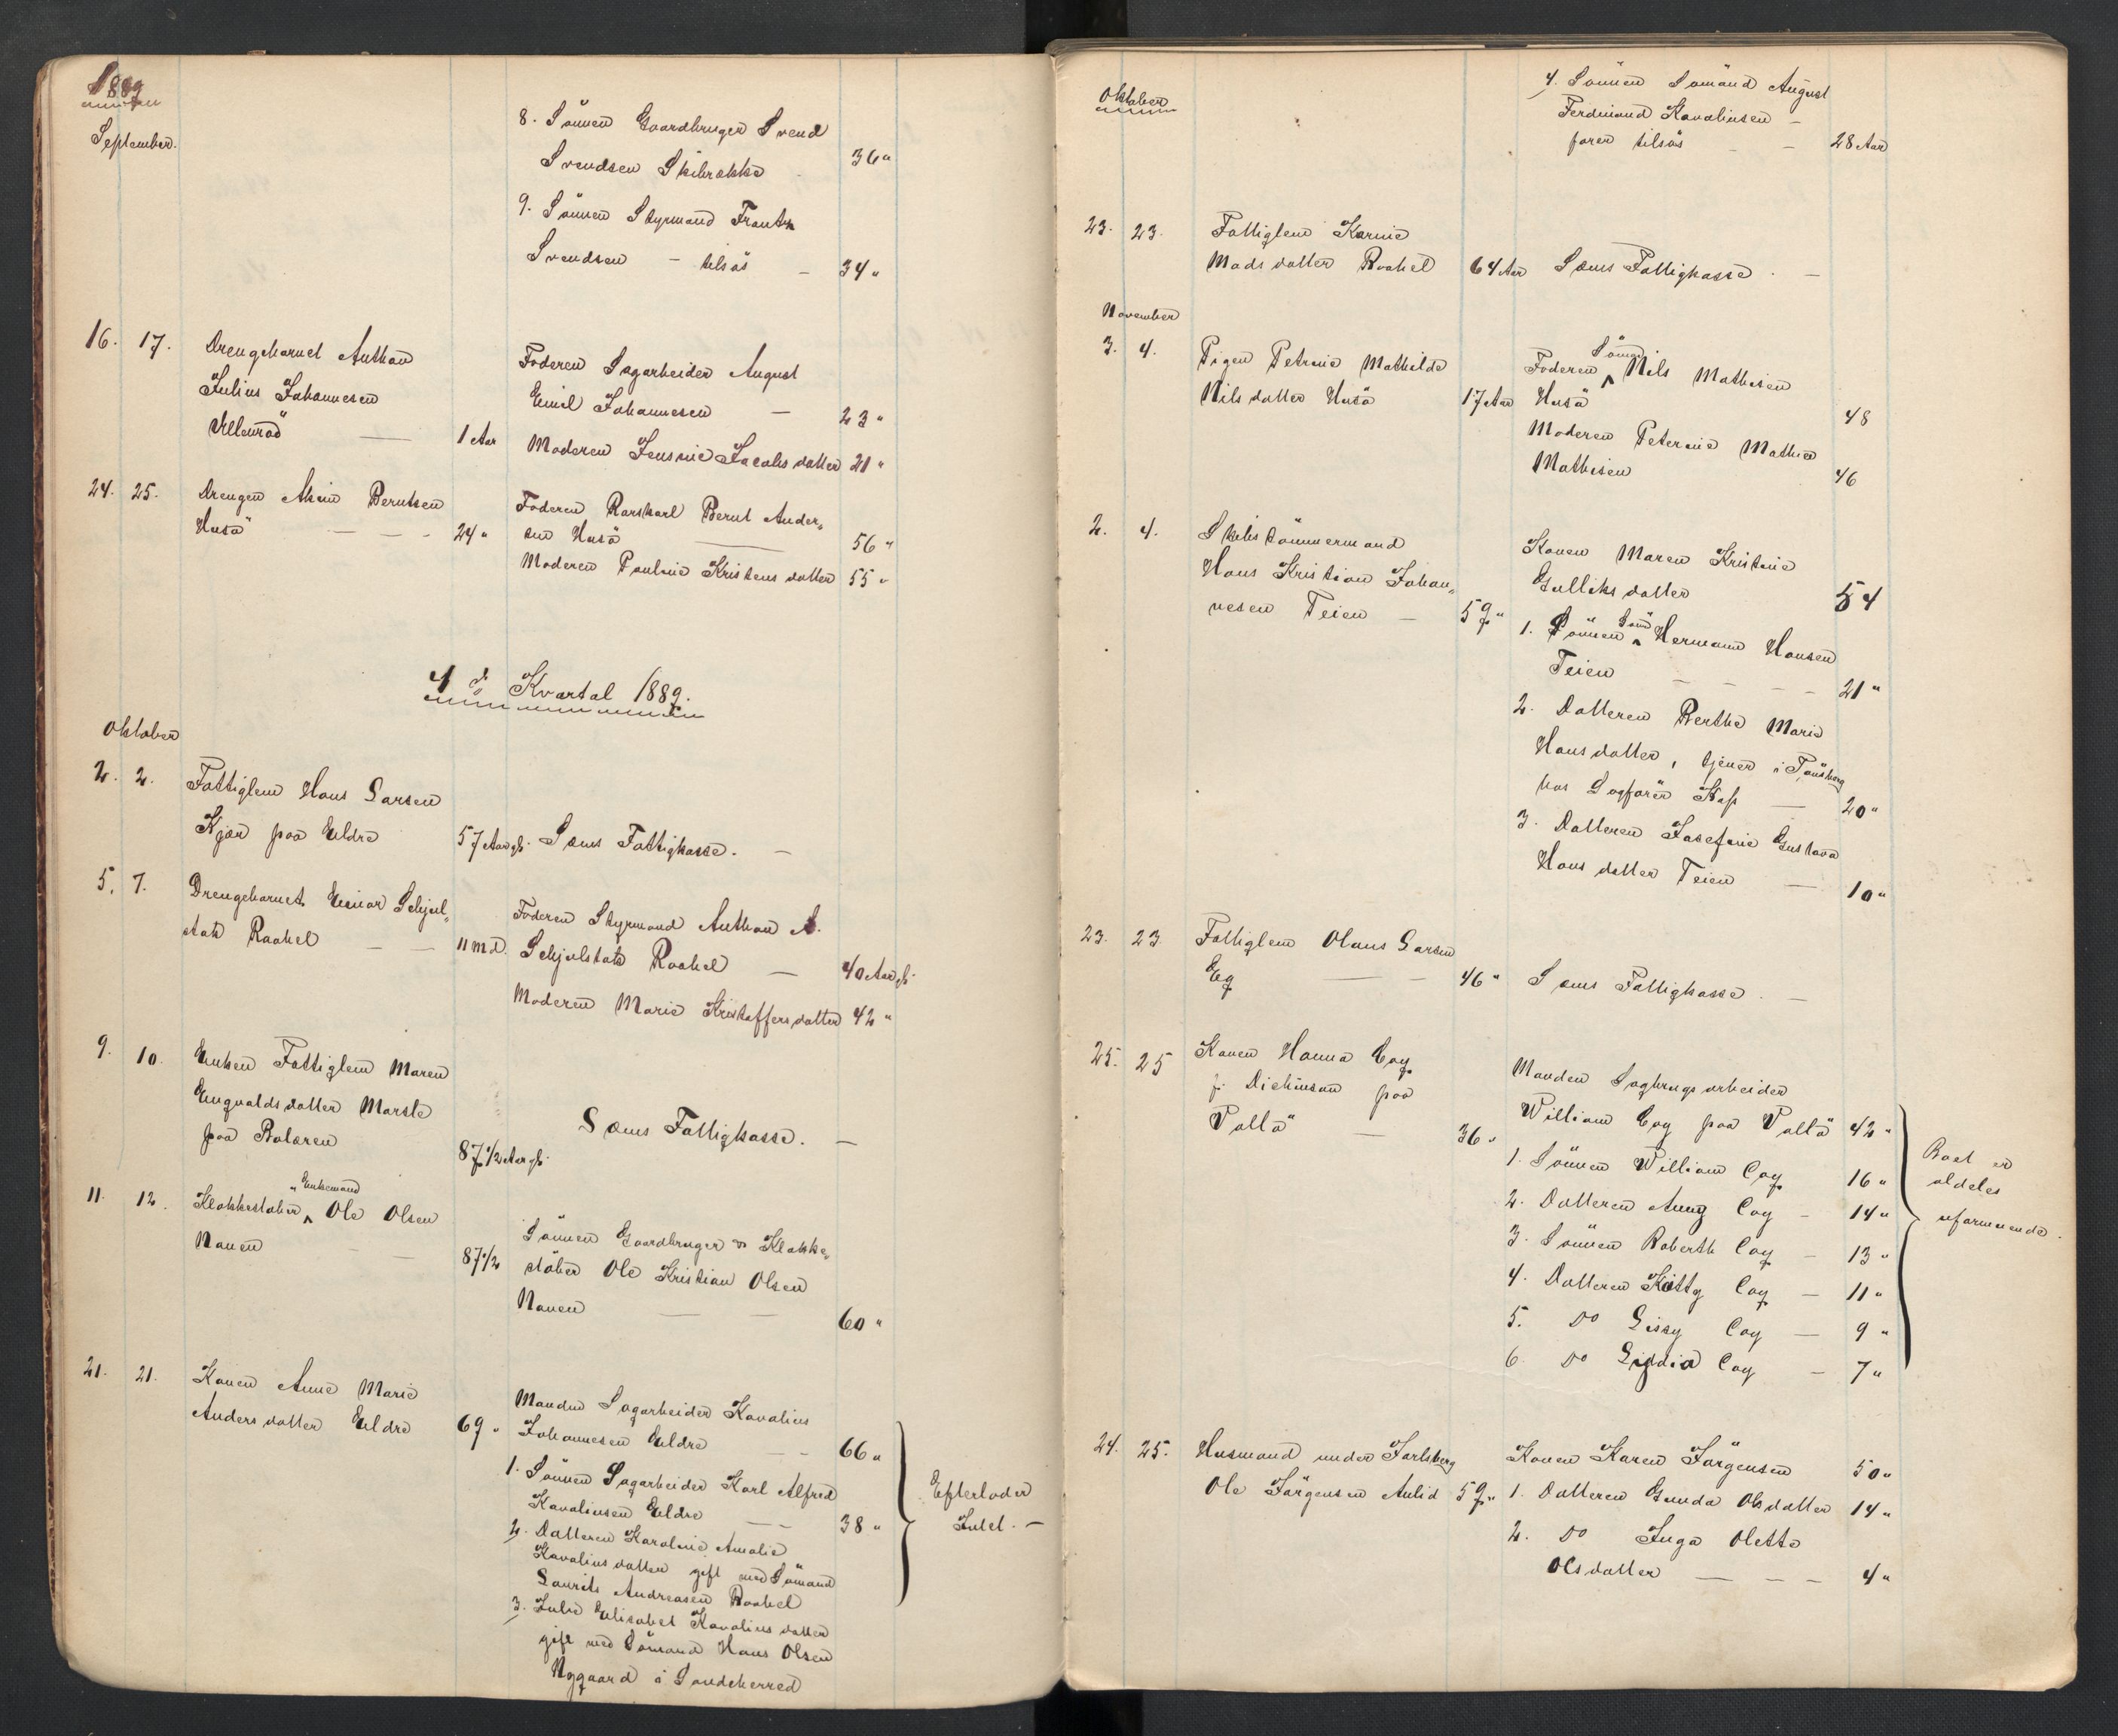 1889
September.
8. Sönnen Gaardbruger Svend
Svendsen Skibrække
36 "
9. Sönnen Styrmand Frants
Svendsen – tilsös – 34 "
16. 17. Drengebarnet Anthon
Julius Johannesen
Ullenröd — 1 Aar
Faderen Sagarbeider August
Emil Johannesen — 23 "
Moderen Jensine Jacobsdatter 21 "
24. 25. Drengen Berntsen
Husö — — - 24 "
Faderen Karl Bernt Ander„
sen Husö — 56 "
Moderen Pauline Kristensdatter 55 "
4de Kvartal 1889.
Oktober
2. 2. Fattiglem Hans Larsen
Kjær paa Eeldre 57 Aar gl. Sæms Fattigkasse. –
5. 7. Drengebarnet Einar Schjel„
stok Raakel — — 11 md.
Faderen Styrmand Anthon A.
Schjelstok Raakel — 40 Aar gl.
Moderen Marie Kristoffersdatter 42 "
9. 10. Enken Fattiglem Maren
Engvaldsdatter
paa Bolæren 87 1/2 Aar gl.
Sæms Fattigkasse. –
11. 12. Klokkestøber Enkemand Ole Olsen
Nauen — 87 1/2
Sönnen Gaardbruger og Klokke„
støber Ole Kristian Olsen
Nauen — — 60 "
21. 21. Konen Anne Marie
Andersdatter Eeldre 69 "
Manden Sagarbeider Kavalius
Johannesen Eeldre — 66 "
1. Sönnen Sagarbeider Karl Alfred
Kavaliusen Eeldre — 38 "
2. Datteren Karoline Amalie
Kavaliusdatter gift med Sömand
Laurits Andreasen Raakel
3. Julie Elisabet Kavaliusdatter
gift med Sömand Hans Olsen
Nygaard i Sandeherred
Efterlader
Intet. –
Oktober
4. Sönnen Sömand August
Ferdinand Kavaliusen –
farer tilsös – – 28 Aar
23. 23. Fattiglem Karine
Madsdatter Raakel 64 Aar Sæms Fattigkasse. –
November
3. 4. Pigen Petrine Mathilde
Nilsdatter Husö 17 Aar
Faderen Sömd Nils Mathisen
Husö 48
Moderen Peterine Mathea
Mathisen 46
2. 4. Skibstömmermand
Hans Kristian Johan„
nesen Teien — 59 "
Konen Maren Kristine
Gulliksdatter 54
1. Sönnen Sömd Hermann Hansen
Teien – – – – 21 "
2. Datteren Berthe Marie
Hansdatter, tjener i Tönsberg
hos Sagfører — 20 "
3. Datteren Josefine Gustava
Hansdatter Teien — 10 "
23. 23 Fattiglem Olaus Larsen
Eg — – 46 " Sæms Fattigkasse. –
25. 25 Konen Hanna Coy
f. Dickinson paa
Vallö — 36 "
Manden Sagbrugsarbeider
William Coy paa Vallö 42 "
1. Sönnen William Coy 16 "
2. Datteren Anny Coy – 14 "
3. Sönnen Roberth Coy – 13 "
4. Datteren Kitty Coy – 11 "
5. Do Lissy Coy — 9 "
6. Do Lijdia Coy – 7 "
Boet er
aldeles
uformuende.
24. 25. Husmand under Jarlsberg
Ole Jörgensen Aulid 59 "
Konen Karen Jörgensen 50 "
1. Datteren Gunda Olsdatter 14 "
2. Do Inga Olette
Olsdatter — – – 4 "